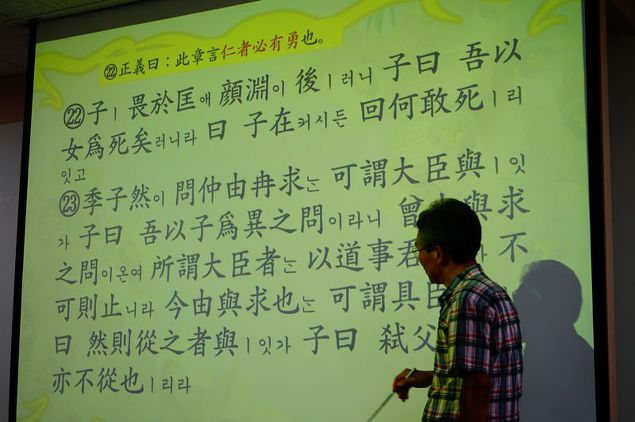 ㉒正義曰：此章言仁者必有勇也。
㉒子ㅣ 畏於匡애 顔淵이 後ㅣ러니 子曰 吾以
女爲死矣러니라 曰 子在커시든 回何敢死ㅣ리
잇고
㉓季子然이 問仲由冉求는 可謂大臣與ㅣ잇
가 子曰 吾以子爲異之問이라니 曾由與求
之問이온여 所謂大臣者는 以道事君 不
可則止니라 今由與求也는 可謂具臣
曰 然則從之者與ㅣ잇가 子曰 弑父
亦不從也ㅣ리라